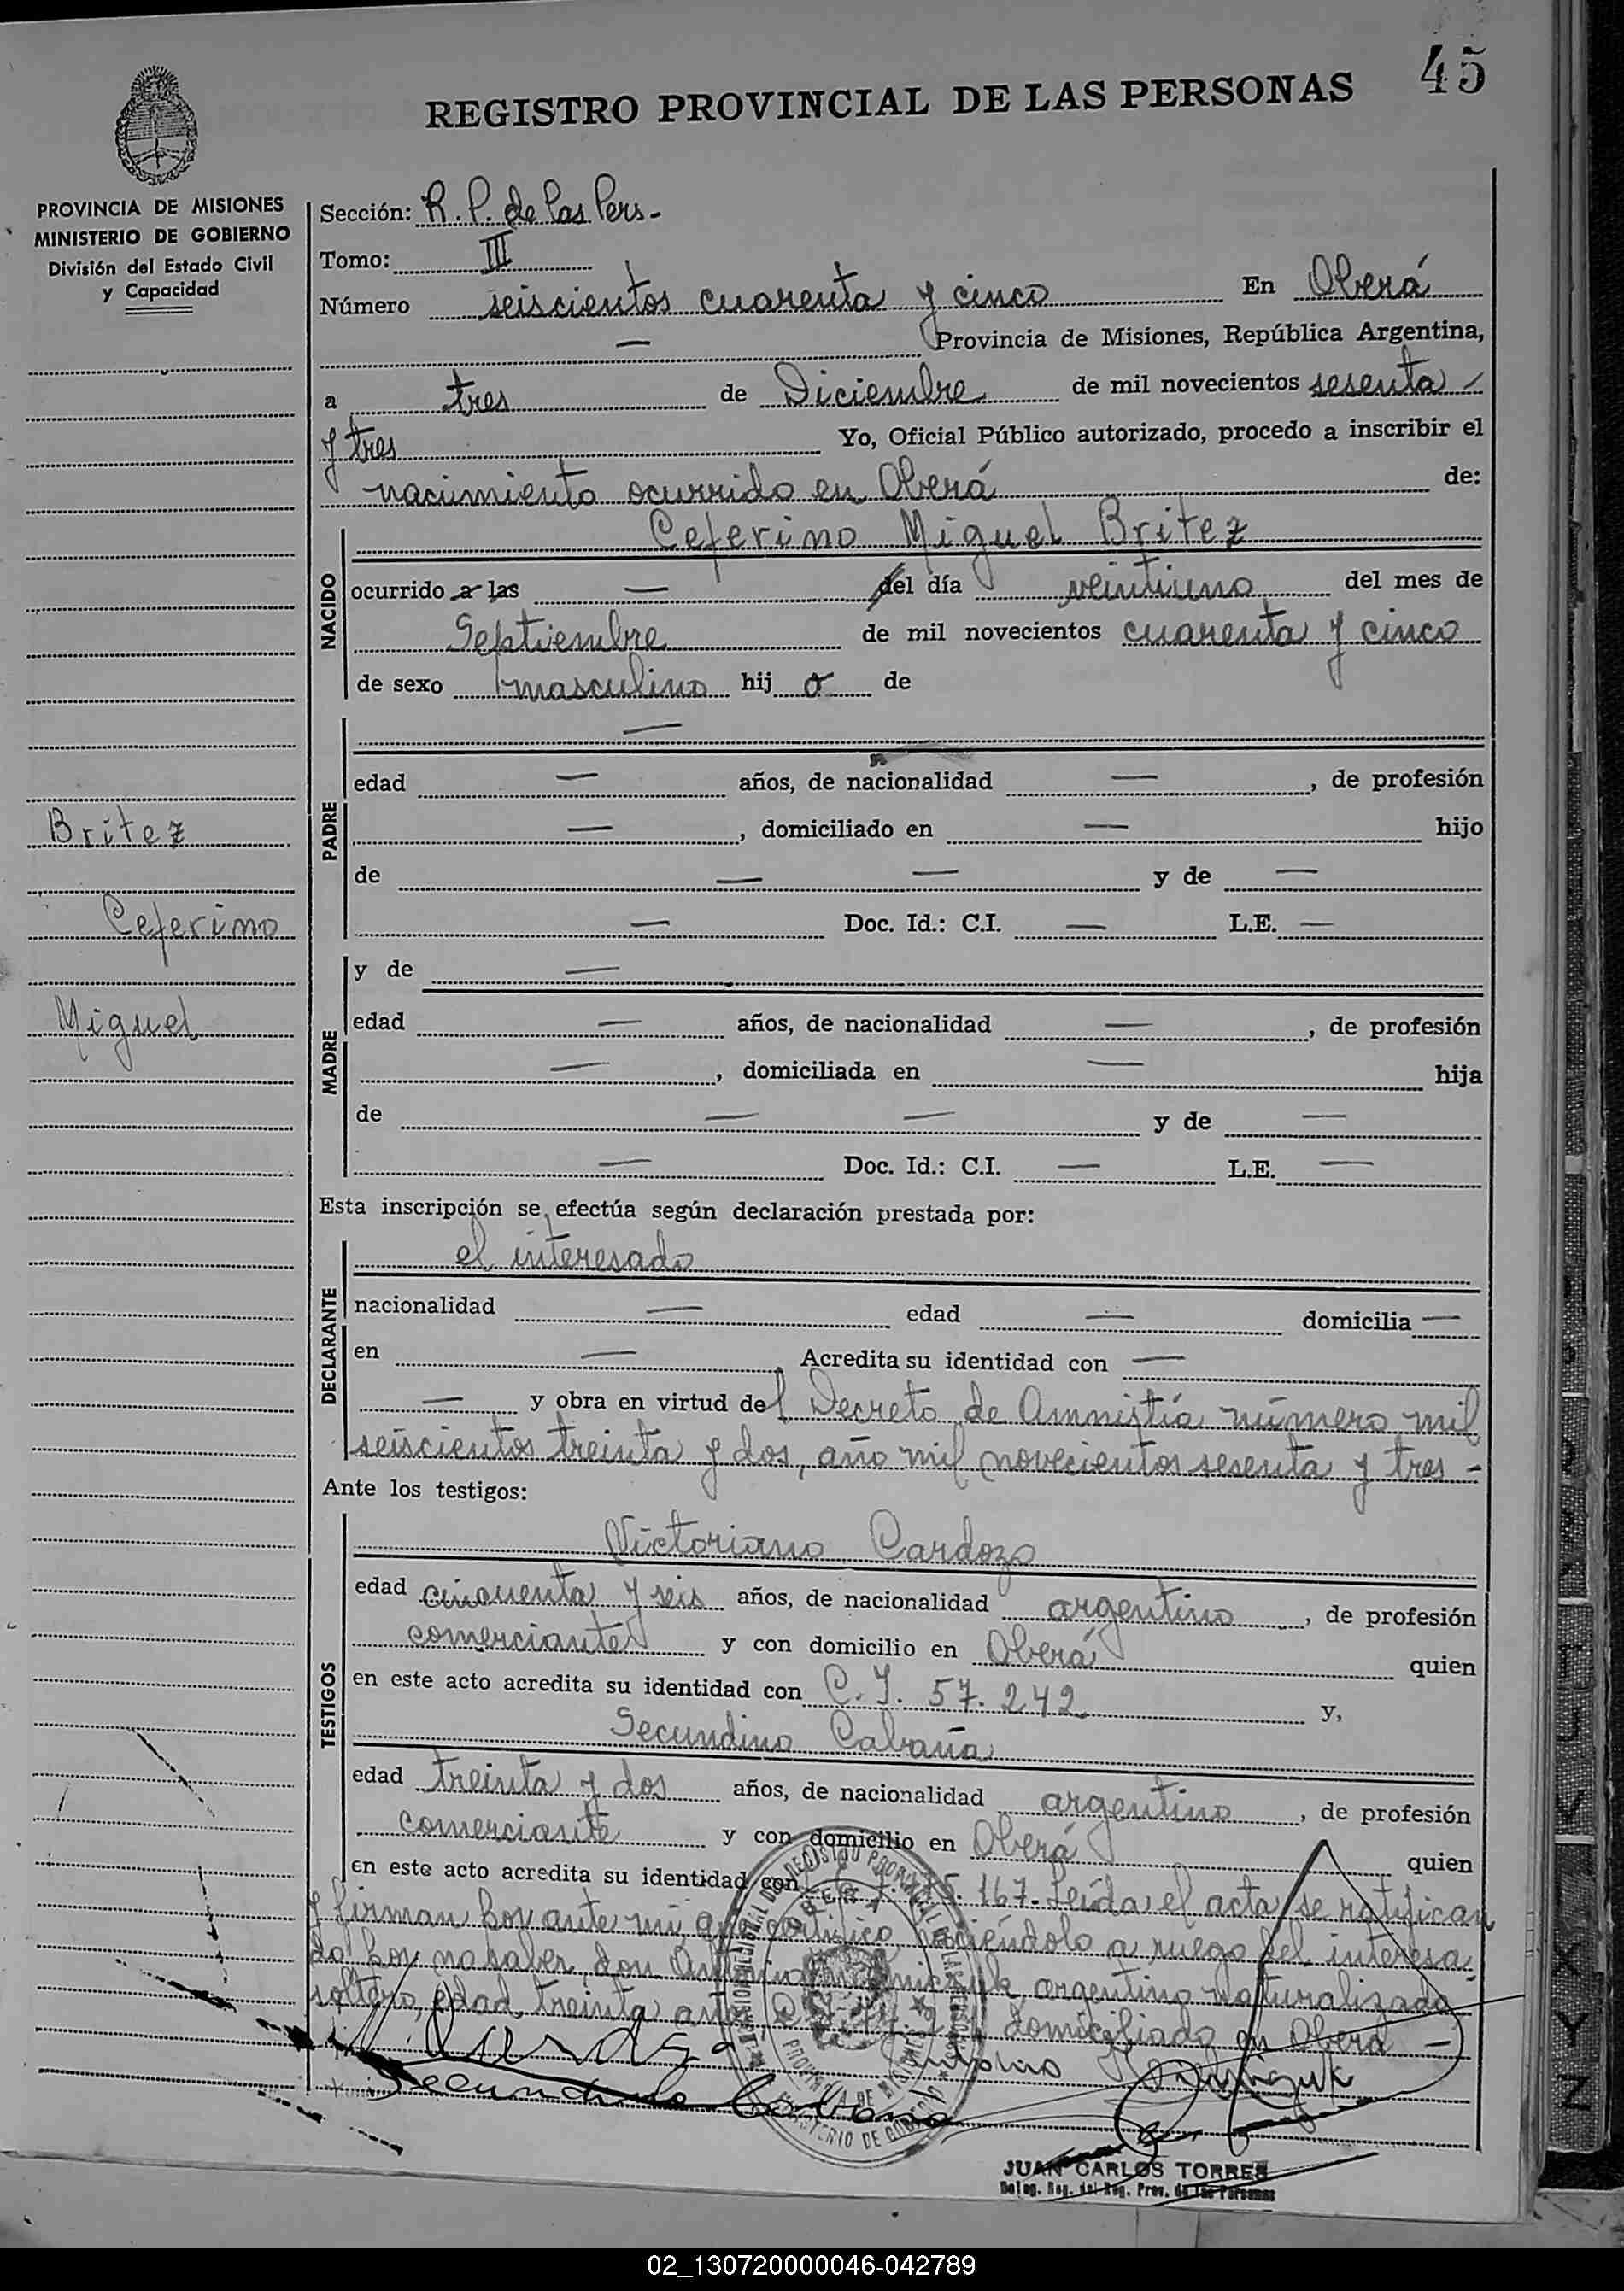 45
REGISTRO PROVINCIAL DE LAS PERSONAS
PROVINCIA DE MISIONES
MINISTERIO DE GOBIERNO
División del Estado Civil
y Capacidad
Sección: R. P. de las Pers-
Tomo: III
Número seiscientos cuarenta y cinco En Oberá
— Provincia de Misiones, República Argentina,
a tres de Diciembre de mil novecientos sesenta —
y tres Yo, Oficial Público autorizado, procedo a inscribir el
nacimiento ocurrido en Oberá de:
NACIDO
Ceferino Miguel Britez
ocurrido a las — del día veintiuno del mes de
Septiembre de mil novecientos cuarenta y cinco
de sexo masculino hij o de
PADRE
—
edad — años, de nacionalidad —, de profesión
—, domiciliado en — hijo
de — — y de —
— Doc. Id.: C.I. — L.E. —
Britez
Ceferino
Miguel
MADRE
y de —
edad — años, de nacionalidad —, de profesión
—, domiciliada en — hija
de — — y de —
— Doc. Id.: C.I. — L.E. —
Esta inscripción se efectúa según declaración prestada por:
DECLARANTE
el interesado
nacionalidad — edad — domicilia —
en —, Acredita su identidad con —
— y obra en virtud del Decreto de Amnistía número mil
seiscientos treinta y dos, año mil novecientos sesenta y tres -
Ante los testigos:
TESTIGOS
Victoriano Cardozo
edad cincuenta y seis años, de nacionalidad argentino, de profesión
comerciante y con domicilio en Oberá quien
en este acto acredita su identidad con C. I. 57.242 y,
Secundino Cabaña
edad treinta y dos años, de nacionalidad argentino, de profesión
comerciante y con domicilio en Oberá quien
en este acto acredita su identidad con 167.- Leída el acta se ratifican
y firman por ante mí, que certifico haciéndolo a ruego del interesa-
do por no saber, don argentino naturalizado
soltero, edad treinta años domiciliado en Oberá —
Secundino Cabaña
PROVINCIA DE MISIONES
MINISTERIO DE GOBIERNO
JUAN CARLOS TORRES
Deleg. Reg. del Reg. Prov. de las Personas
02_130720000046-042789